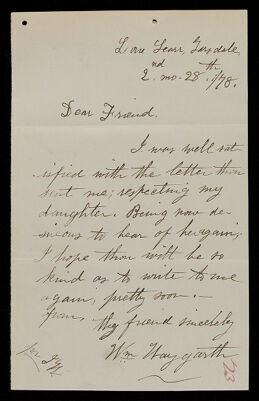 Lane Scarr, Garsdale,
2nd. mo. 28th /78.
Dear Friend.
I was well sat-
isfied with the letter thou
sent me; respecting my
daughter. Being now de-
sirous to hear of her again;
I hope thou will be so
kind as to write to me
again, pretty soon. —
from, thy friend sincerely
Wm Haygarth
per
23